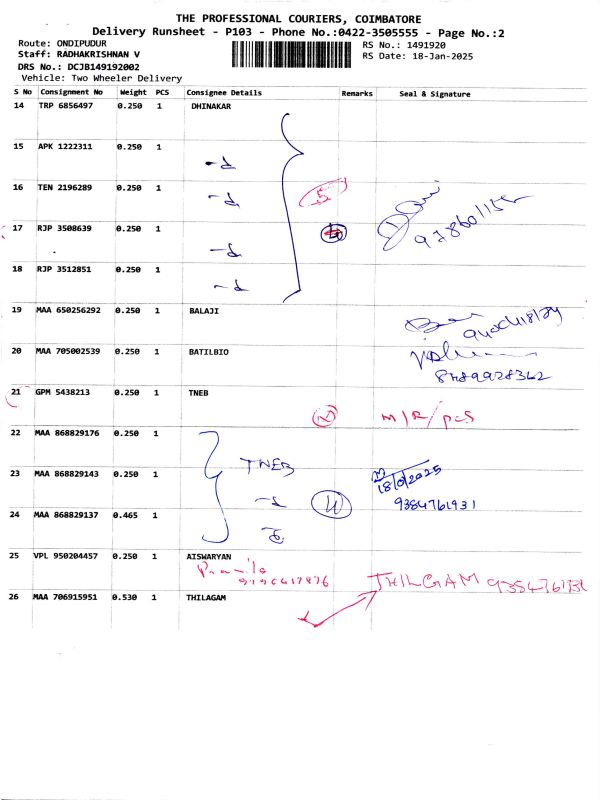 THE PROFESSIONAL COURIERS, COIMBATORE
Delivery Runsheet - P103 - Phone No.:0422-3505555 - Page No.:2
Route: ONDIPUDUR
RS No.: 1491920
Staff: RADHAKRISHNAN V
RS Date: 18-Jan-2025
DRS No.: DCJB149192002
Vehicle: Two Wheeler Delivery
S No Consignment No Weight PCS Consignee Details Remarks Seal & Signature
14 TRP 6856497 0.250 1 DHINAKAR
15 APK 1222311 0.250 1
16 TEN 2196289 0.250 1
17 RJP 3508639 0.250 1
18 RJP 3512851 0.250 1
19 MAA 650256292 0.250 1 BALAJI
20 MAA 705002539 0.250 1 BATILBIO
8489928362
21 GPM 5438213 0.250 1 TNEB
M/R/pcs
22 MAA 868829176 0.250 1
TNEB
23 MAA 868829143 0.250 1
9384761931
24 MAA 868829137 0.465 1
25 VPL 950204457 0.250 1 AISWARYAN
THILGAM
26 MAA 706915951 0.530 1 THILAGAM